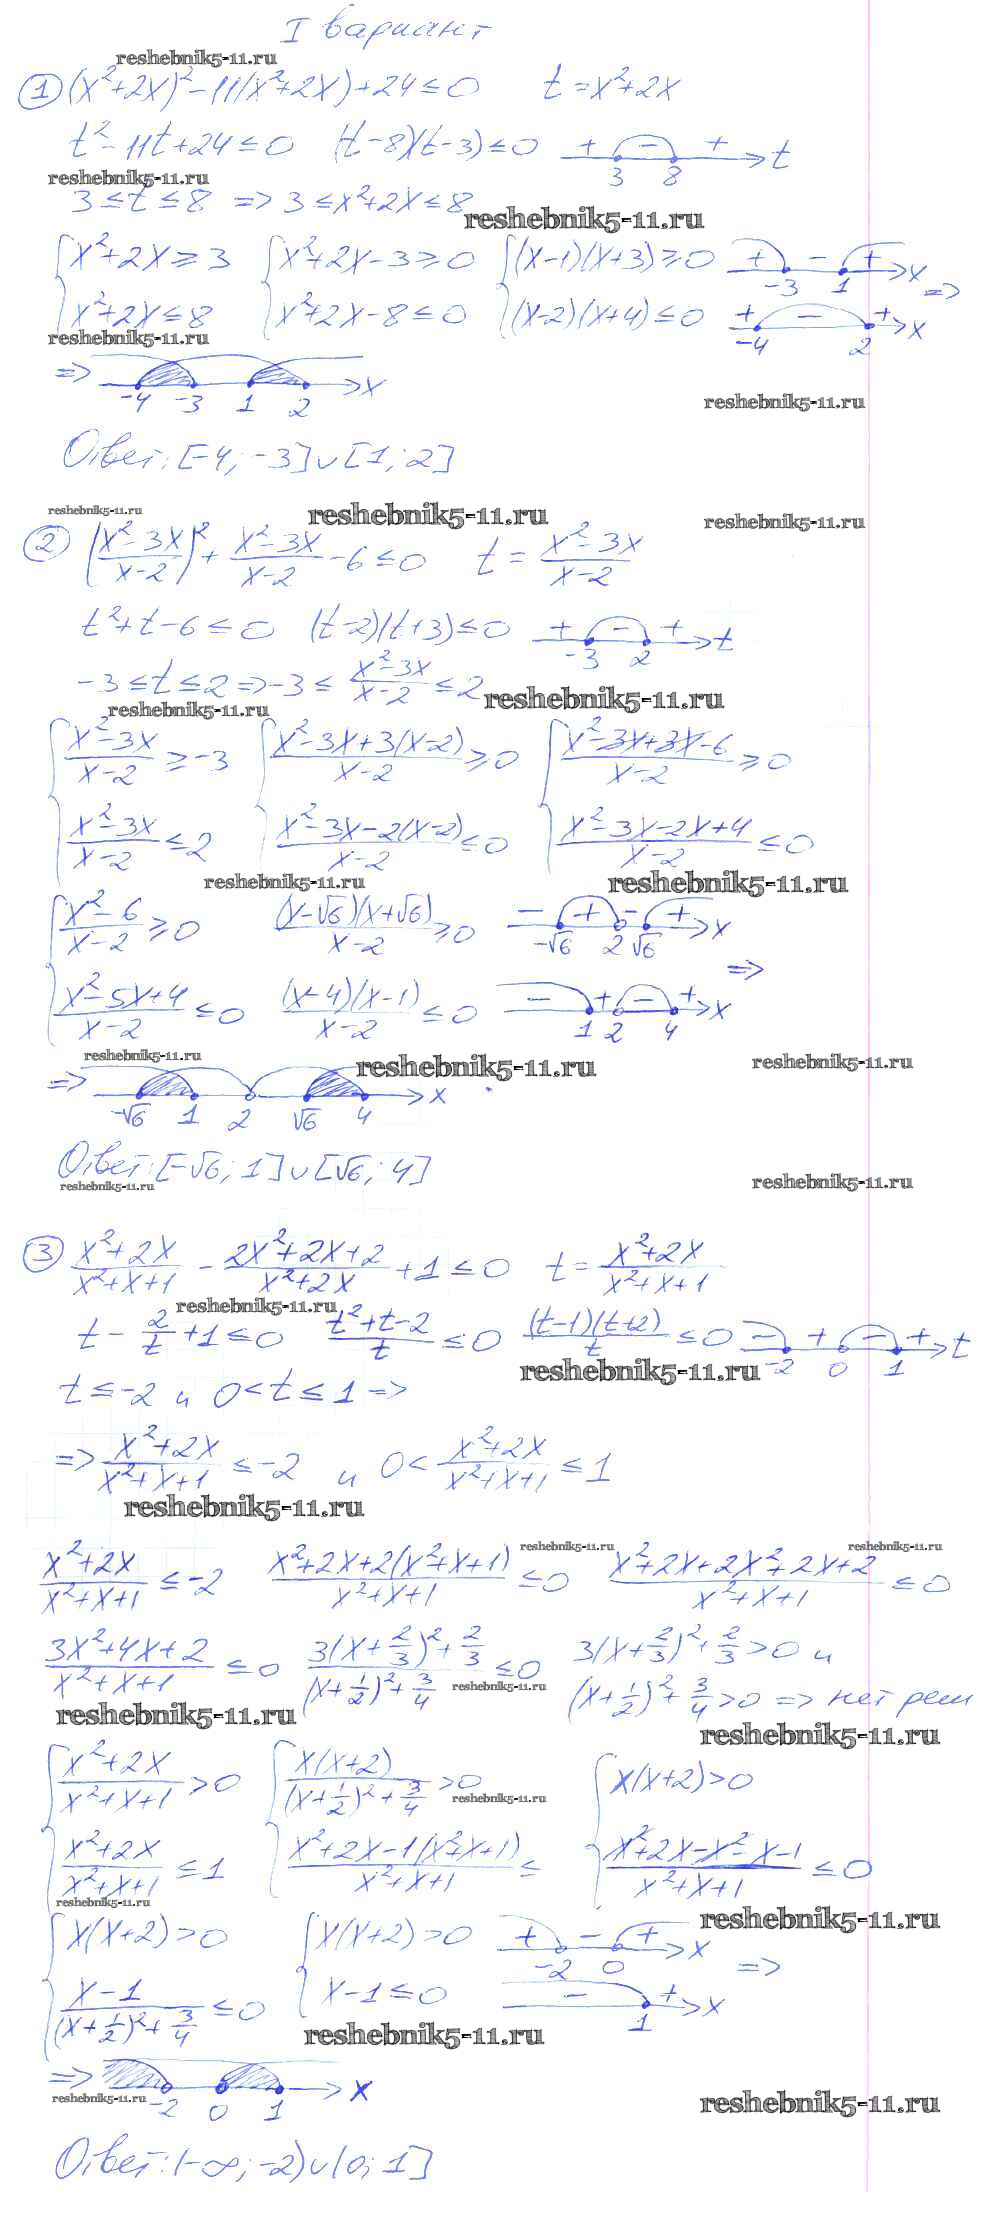 I вариант
reshebnik5-11.ru
① (x²+2x)²-11(x²+2x)+24≤0 t=x²+2x
t²-11t+24≤0 (t-8)(t-3)≤0 + - + t
3 8
reshebnik5-11.ru
3≤t≤8 => 3≤x²+2x≤8
reshebnik5-11.ru
{ x²+2x≥3 { x²+2x-3≥0 { (x-1)(x+3)≥0 + - + x
-3 1 =>
{ x²+2x≤8 { x²+2x-8≤0 { (x-2)(x+4)≤0 + - + x
-4 2
reshebnik5-11.ru
=> -4 -3 1 2 x
reshebnik5-11.ru
Ответ: [-4; -3]∪[1; 2]
reshebnik5-11.ru reshebnik5-11.ru reshebnik5-11.ru
② ((x²-3x)/(x-2))² + (x²-3x)/(x-2) - 6≤0 t = (x²-3x)/(x-2)
t²+t-6≤0 (t-2)(t+3)≤0 + - + t
-3 2
-3≤t≤2 => -3≤ (x²-3x)/(x-2) ≤2
reshebnik5-11.ru
reshebnik5-11.ru
{ (x²-3x)/(x-2) ≥ -3 { (x²-3x+3(x-2))/(x-2) ≥0 { (x²-3x+3x-6)/(x-2) ≥0
{ (x²-3x)/(x-2) ≤2 { (x²-3x-2(x-2))/(x-2) ≤0 { (x²-3x-2x+4)/(x-2) ≤0
reshebnik5-11.ru reshebnik5-11.ru
{ (x²-6)/(x-2) ≥0 ((x-√6)(x+√6))/(x-2) ≥0 - + - + x
-√6 2 √6 =>
{ (x²-5x+4)/(x-2) ≤0 ((x-4)(x-1))/(x-2) ≤0 - + - + x
1 2 4
reshebnik5-11.ru reshebnik5-11.ru reshebnik5-11.ru
=> -√6 1 2 √6 4 x
Ответ: [-√6; 1]∪[√6; 4]
reshebnik5-11.ru reshebnik5-11.ru
③ (x²+2x)/(x²+x+1) - (2x²+2x+2)/(x²+2x) +1≤0 t= (x²+2x)/(x²+x+1)
reshebnik5-11.ru
t - 2/t +1≤0 (t²+t-2)/t ≤0 ((t-1)(t+2))/t ≤0 - + - + t
-2 0 1
reshebnik5-11.ru
t≤-2 и 0<t≤1 =>
=> (x²+2x)/(x²+x+1) ≤-2 и 0< (x²+2x)/(x²+x+1) ≤1
reshebnik5-11.ru
reshebnik5-11.ru reshebnik5-11.ru
(x²+2x)/(x²+x+1) ≤-2 (x²+2x+2(x²+x+1))/(x²+x+1) ≤0 (x²+2x+2x²+2x+2)/(x²+x+1) ≤0
(3x²+4x+2)/(x²+x+1) ≤0 (3(x+2/3)²+2/3)/((x+1/2)²+3/4) ≤0 3(x+2/3)²+2/3>0 и
reshebnik5-11.ru
(x+1/2)²+3/4>0 => нет реш
reshebnik5-11.ru reshebnik5-11.ru
{ (x²+2x)/(x²+x+1) >0 { (x(x+2))/((x+1/2)²+3/4) >0 { x(x+2)>0
reshebnik5-11.ru
{ (x²+2x)/(x²+x+1) ≤1 { (x²+2x-1(x²+x+1))/(x²+x+1) ≤ { (x²+2x-x²-x-1)/(x²+x+1) ≤0
reshebnik5-11.ru reshebnik5-11.ru
{ x(x+2)>0 { x(x+2)>0 + - + x
-2 0 =>
{ (x-1)/((x+1/2)²+3/4) ≤0 { x-1≤0 - + x
1
reshebnik5-11.ru
=> -2 0 1 x
reshebnik5-11.ru reshebnik5-11.ru
Ответ: (-∞; -2)∪(0; 1]